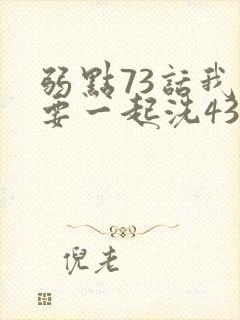 弱點73話我
要一起洗43
倪老